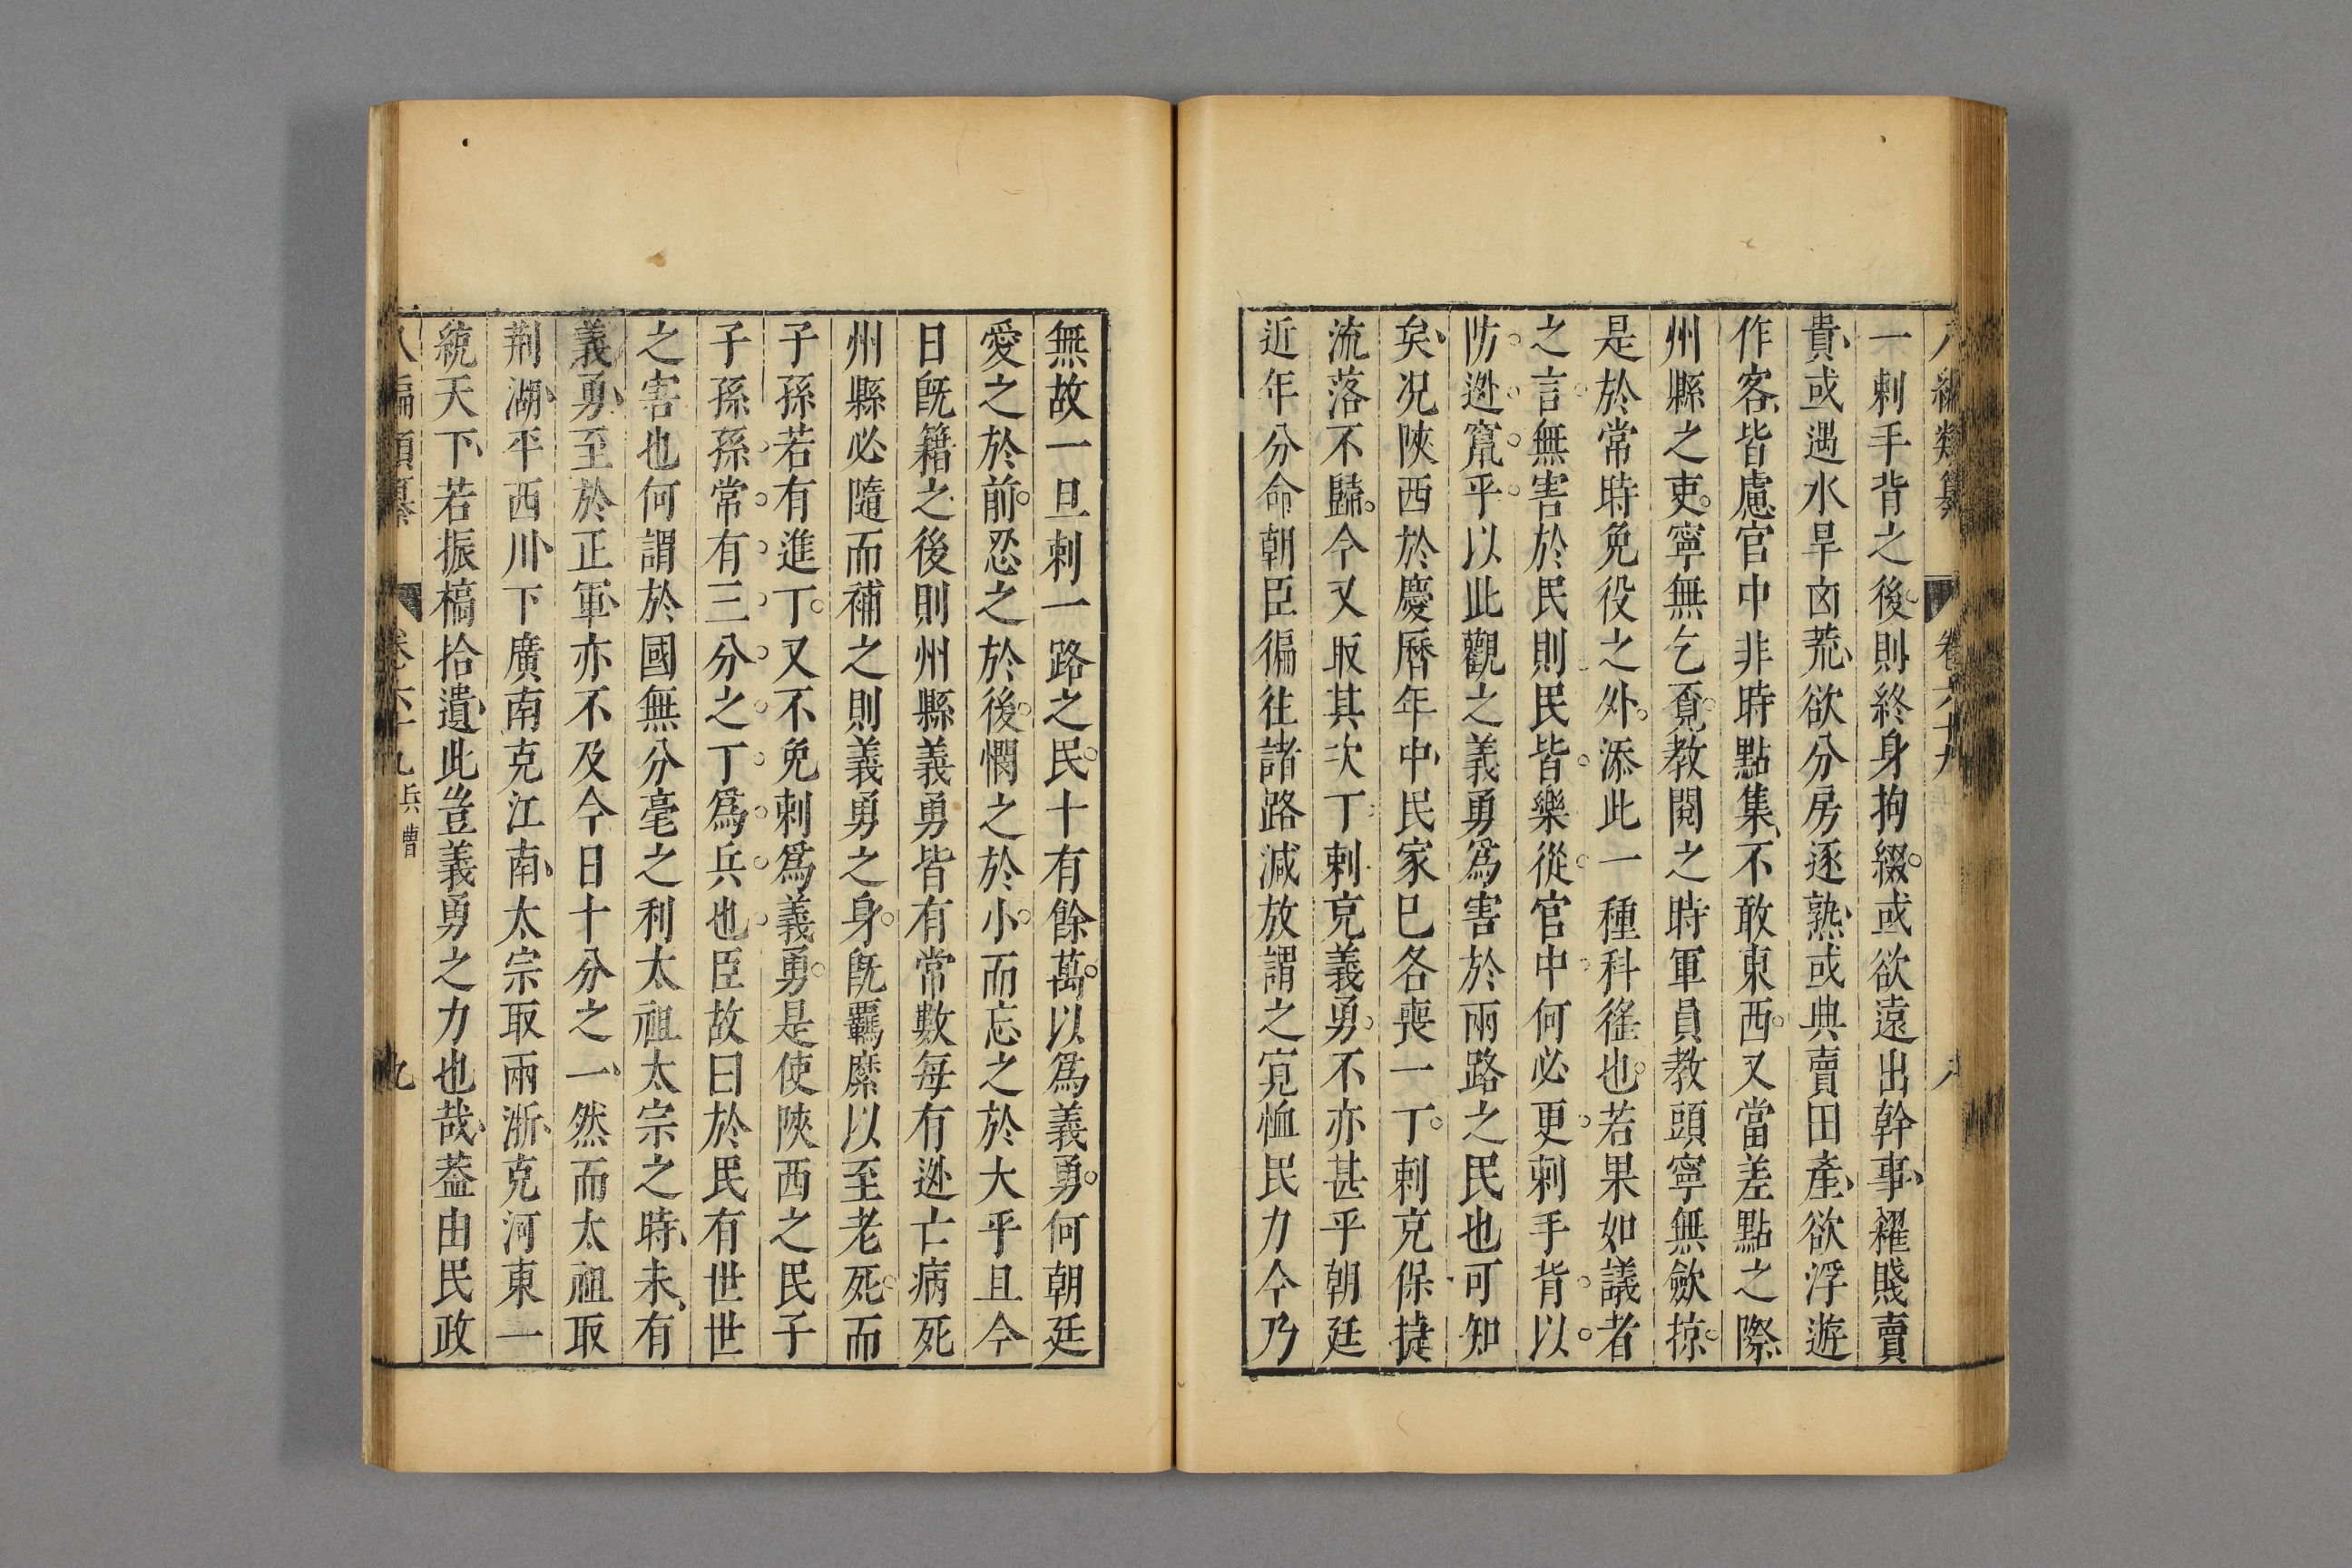 八編類纂 卷六十九 八
一刺手背之後則終身拘綴或欲遠出幹事糴賤賣
貴或遇水旱凶荒欲分房逐熟或典賣田產欲浮遊
作客皆慮官中非時點集不敢東西又當差點之際
州縣之吏寧無乞覔教閱之時軍員教頭寧無歛掠
是於常時免役之外添此一種科徭也若果如議者
之言無害於民則民皆樂從官中何必更刺手背以
防逃竄乎以此觀之義勇爲害於兩路之民也可知
矣况陜西於慶曆年中民家巳各喪一丁刺充保捷
流落不歸今又取其次丁刺充義勇不亦甚乎朝廷
近年分命朝臣徧往諸路減放謂之寬恤民力今乃
無故一旦刺一路之民十有餘萬以爲義勇何朝廷
愛之於前忍之於後憫之於小而忘之於大乎且今
日旣籍之後則州縣義勇皆有常數每有逃亡病死
州縣必隨而補之則義勇之身旣羈縻以至老死而
子孫若有進丁又不免刺爲義勇是使陜西之民子
子孫孫常有三分之丁爲兵也臣故曰於民有世世
之害也何謂於國無分毫之利太祖太宗之時未有
義勇至於正軍亦不及今日十分之一然而太祖取
荆湖平西川下廣南克江南太宗取兩浙克河東一
統天下若振槁拾遺此豈義勇之力也哉葢由民政
八編類纂 卷六十九 兵曹 九